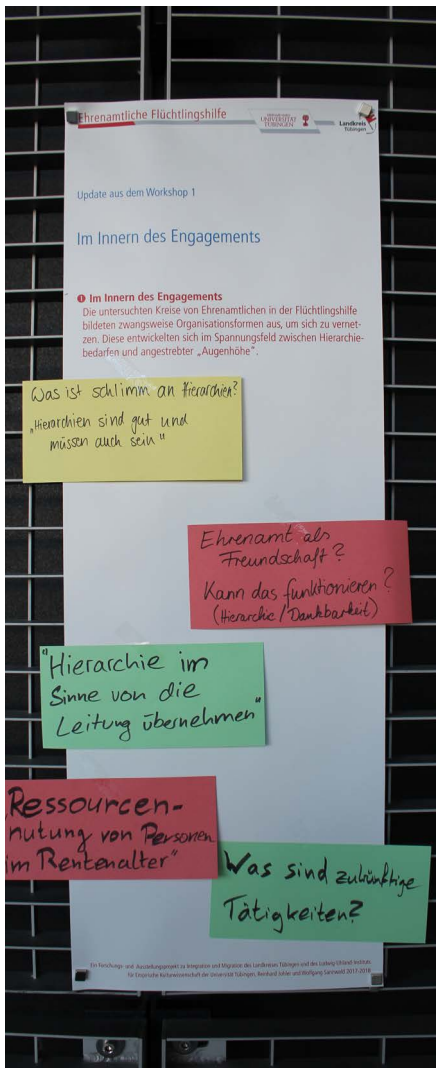 Ehrenamtliche Flüchtlingshilfe
EBERHARD KARLS
UNIVERSITÄT
TÜBINGEN
Landkreis
Tübingen
Update aus dem Workshop 1
Im Innern des Engagements
❶ Im Innern des Engagements
Die untersuchten Kreise von Ehrenamtlichen in der Flüchtlingshilfe
bildeten zwangsweise Organisationsformen aus, um sich zu vernet-
zen. Diese entwickelten sich im Spannungsfeld zwischen Hierarchie-
bedarfen und angestrebter „Augenhöhe".
Was ist schlimm an Hierarchien?
„Hierarchien sind gut und
müssen auch sein"
Ehrenamt als
Freundschaft?
Kann das funktionieren?
(Hierarchie/Dankbarkeit)
"Hierarchie im
Sinne von die
Leitung übernehmen"
Ressourcen-
nutung von Personen
im Rentenalter"
Was sind zukünftige
Tätigkeiten?
Ein Forschungs- und Ausstellungsprojekt zu Integration und Migration des Landkreises Tübingen und des Ludwig-Uhland-Instituts
für Empirische Kulturwissenschaft der Universität Tübingen, Reinhard Johler und Wolfgang Sannwald 2017-2018